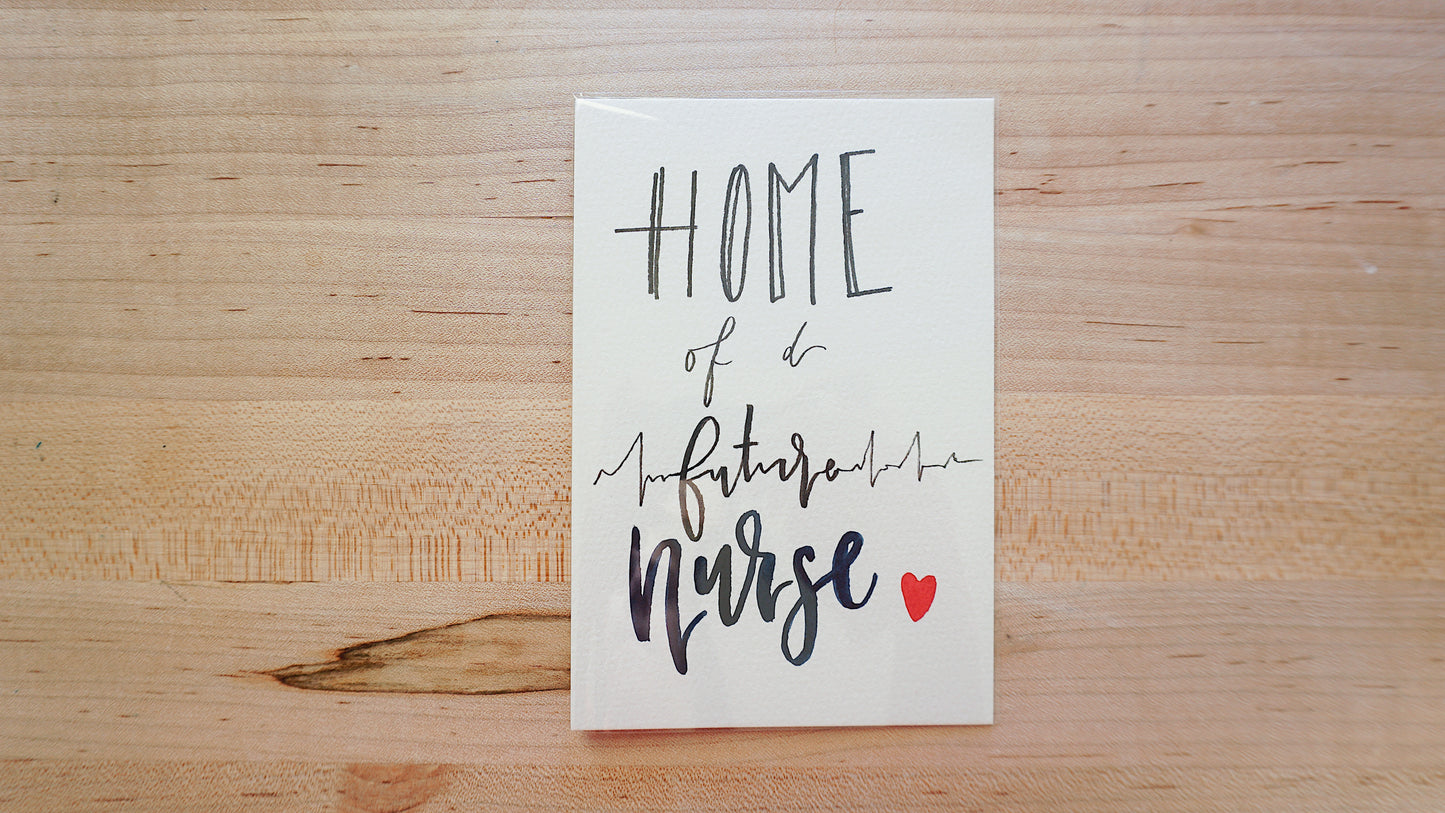 HOME
of a
future
nurse